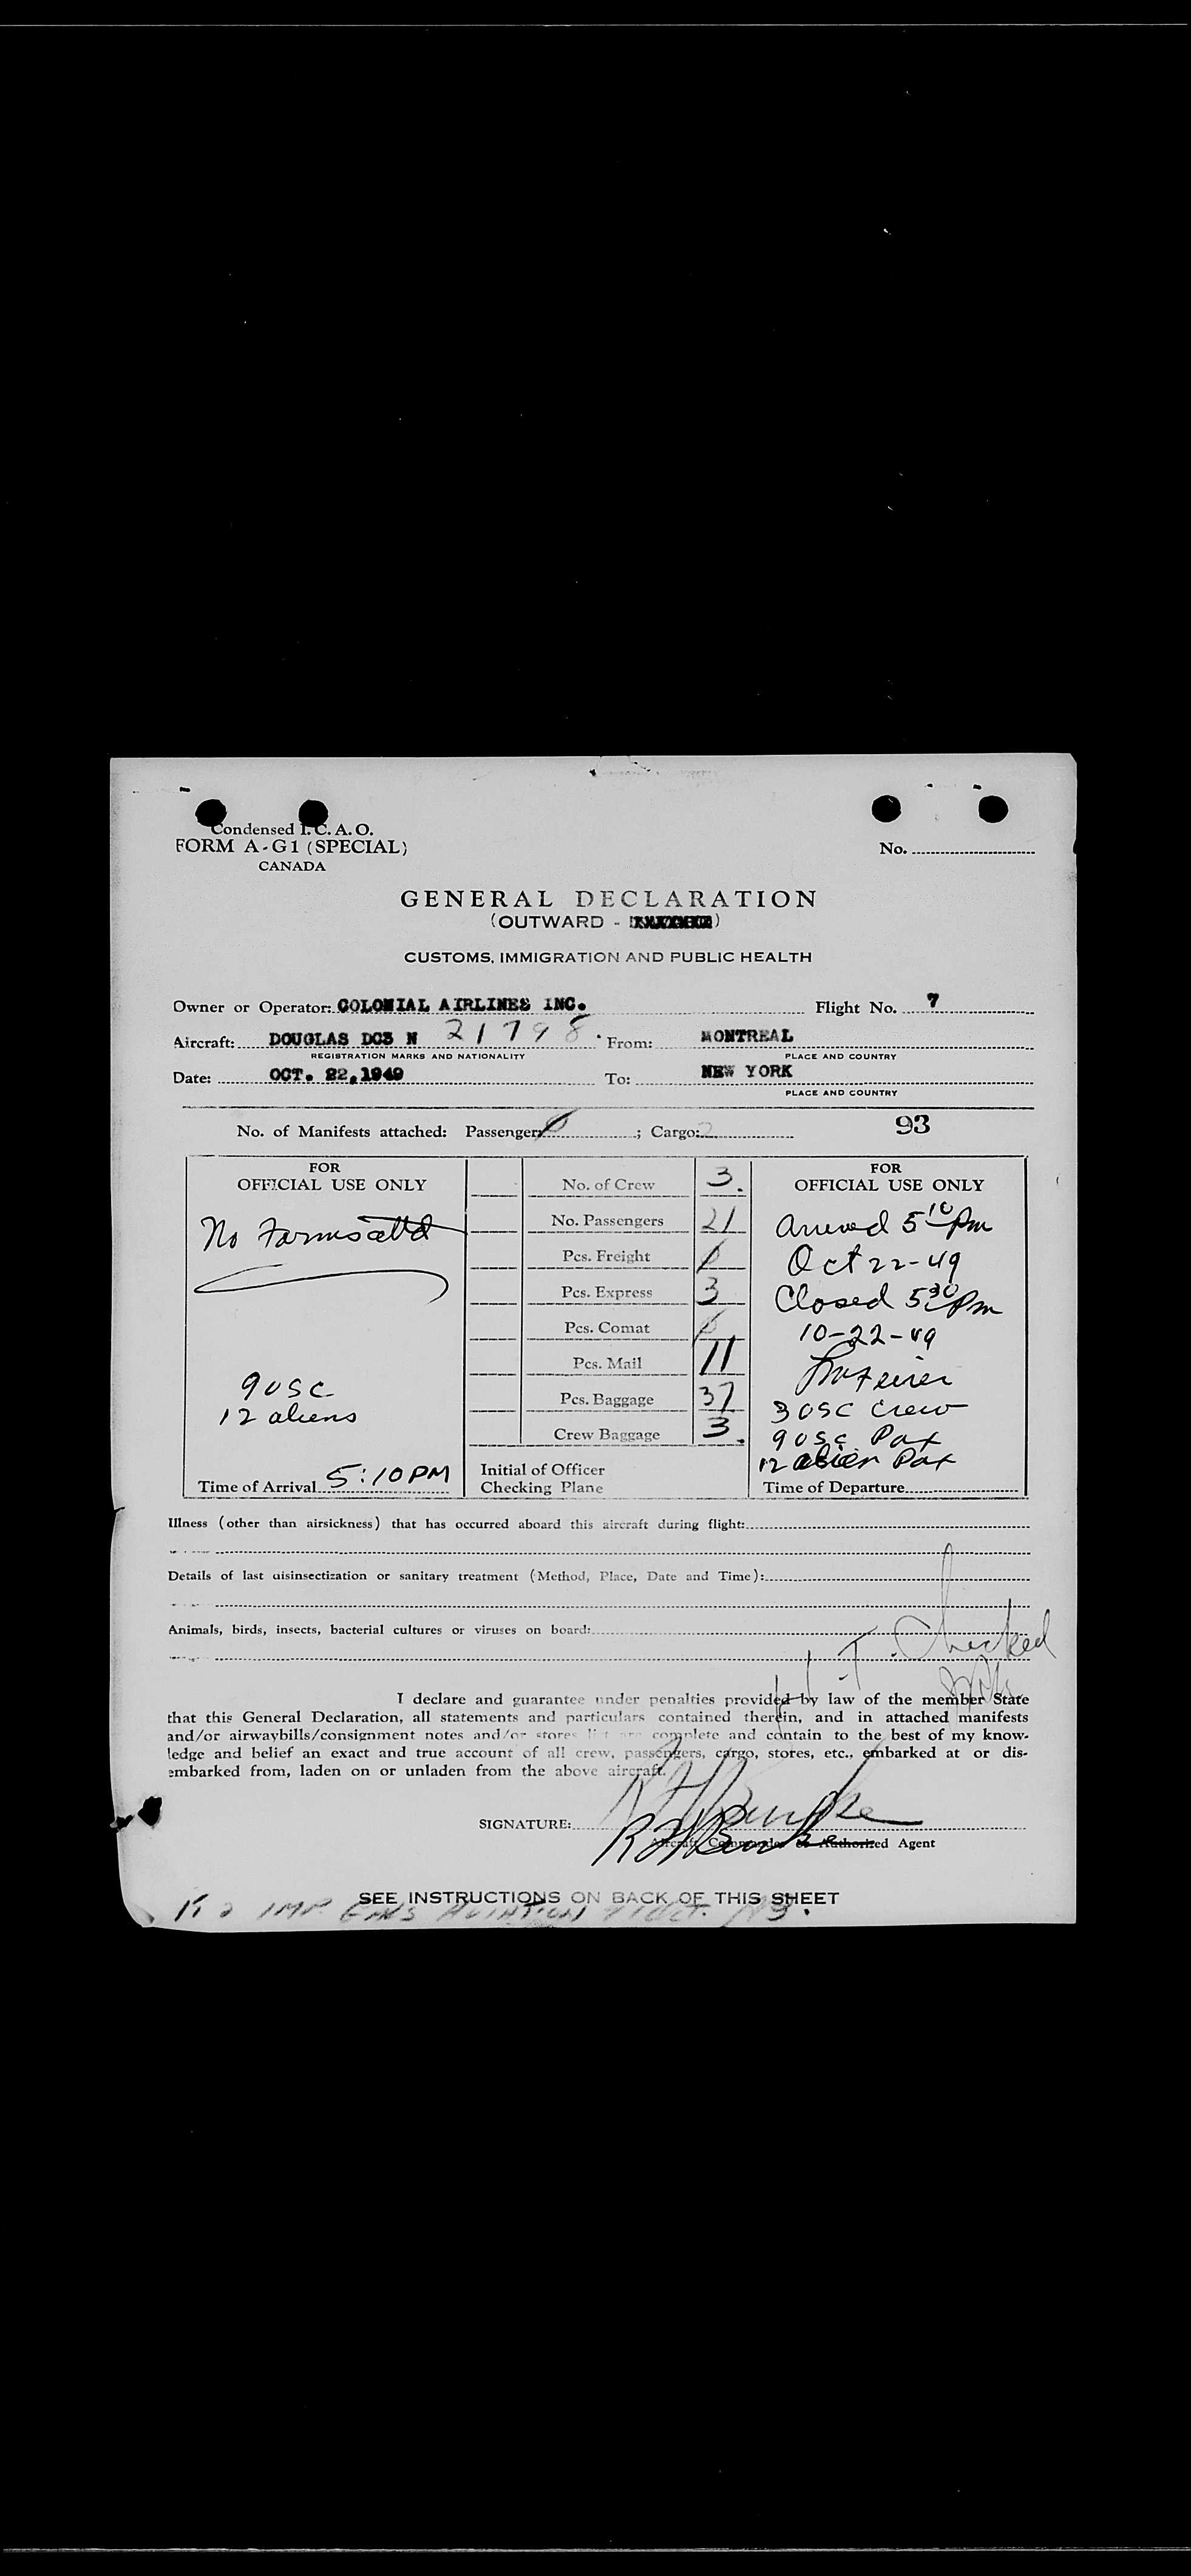 Condensed I. C. A. O.
FORM A-G1 (SPECIAL)
CANADA
No.
GENERAL DECLARATION
(OUTWARD - )
CUSTOMS, IMMIGRATION AND PUBLIC HEALTH
Owner or Operator: COLONIAL AIRLINES INC. Flight No. 7
Aircraft: DOUGLAS DC3 N 21798. From: MONTREAL
REGISTRATION MARKS AND NATIONALITY PLACE AND COUNTRY
Date: OCT. 22,1949 To: NEW YORK
PLACE AND COUNTRY
No. of Manifests attached: Passenger: ; Cargo: 2 93
FOR OFFICIAL USE ONLY
No Forms
9 USC
12 aliens
Time of Arrival 5:10 PM
No. of Crew 3.
No. Passengers 21
Pcs. Freight
Pcs. Express 3
Pcs. Comat
Pcs. Mail 11
Pcs. Baggage 37
Crew Baggage 3.
Initial of Officer
Checking Plane
FOR OFFICIAL USE ONLY
Arrived 5 10 Pm
Oct 22-49
Closed 5 30 Pm
10-22-49
3 USC Crew
9 USC Pax
12 alien Pax
Time of Departure
Illness (other than airsickness) that has occurred aboard this aircraft during flight:
Details of last disinsectization or sanitary treatment (Method, Place, Date and Time):
Animals, birds, insects, bacterial cultures or viruses on board:
Checked
I declare and guarantee under penalties provided by law of the member State
that this General Declaration, all statements and particulars contained therein, and in attached manifests
and/or airwaybills/consignment notes and/or stores list are complete and contain to the best of my know-
ledge and belief an exact and true account of all crew, passengers, cargo, stores, etc., embarked at or dis-
embarked from, laden on or unladen from the above aircraft.
SIGNATURE:
Aircraft Commander or Authorized Agent
SEE INSTRUCTIONS ON BACK OF THIS SHEET